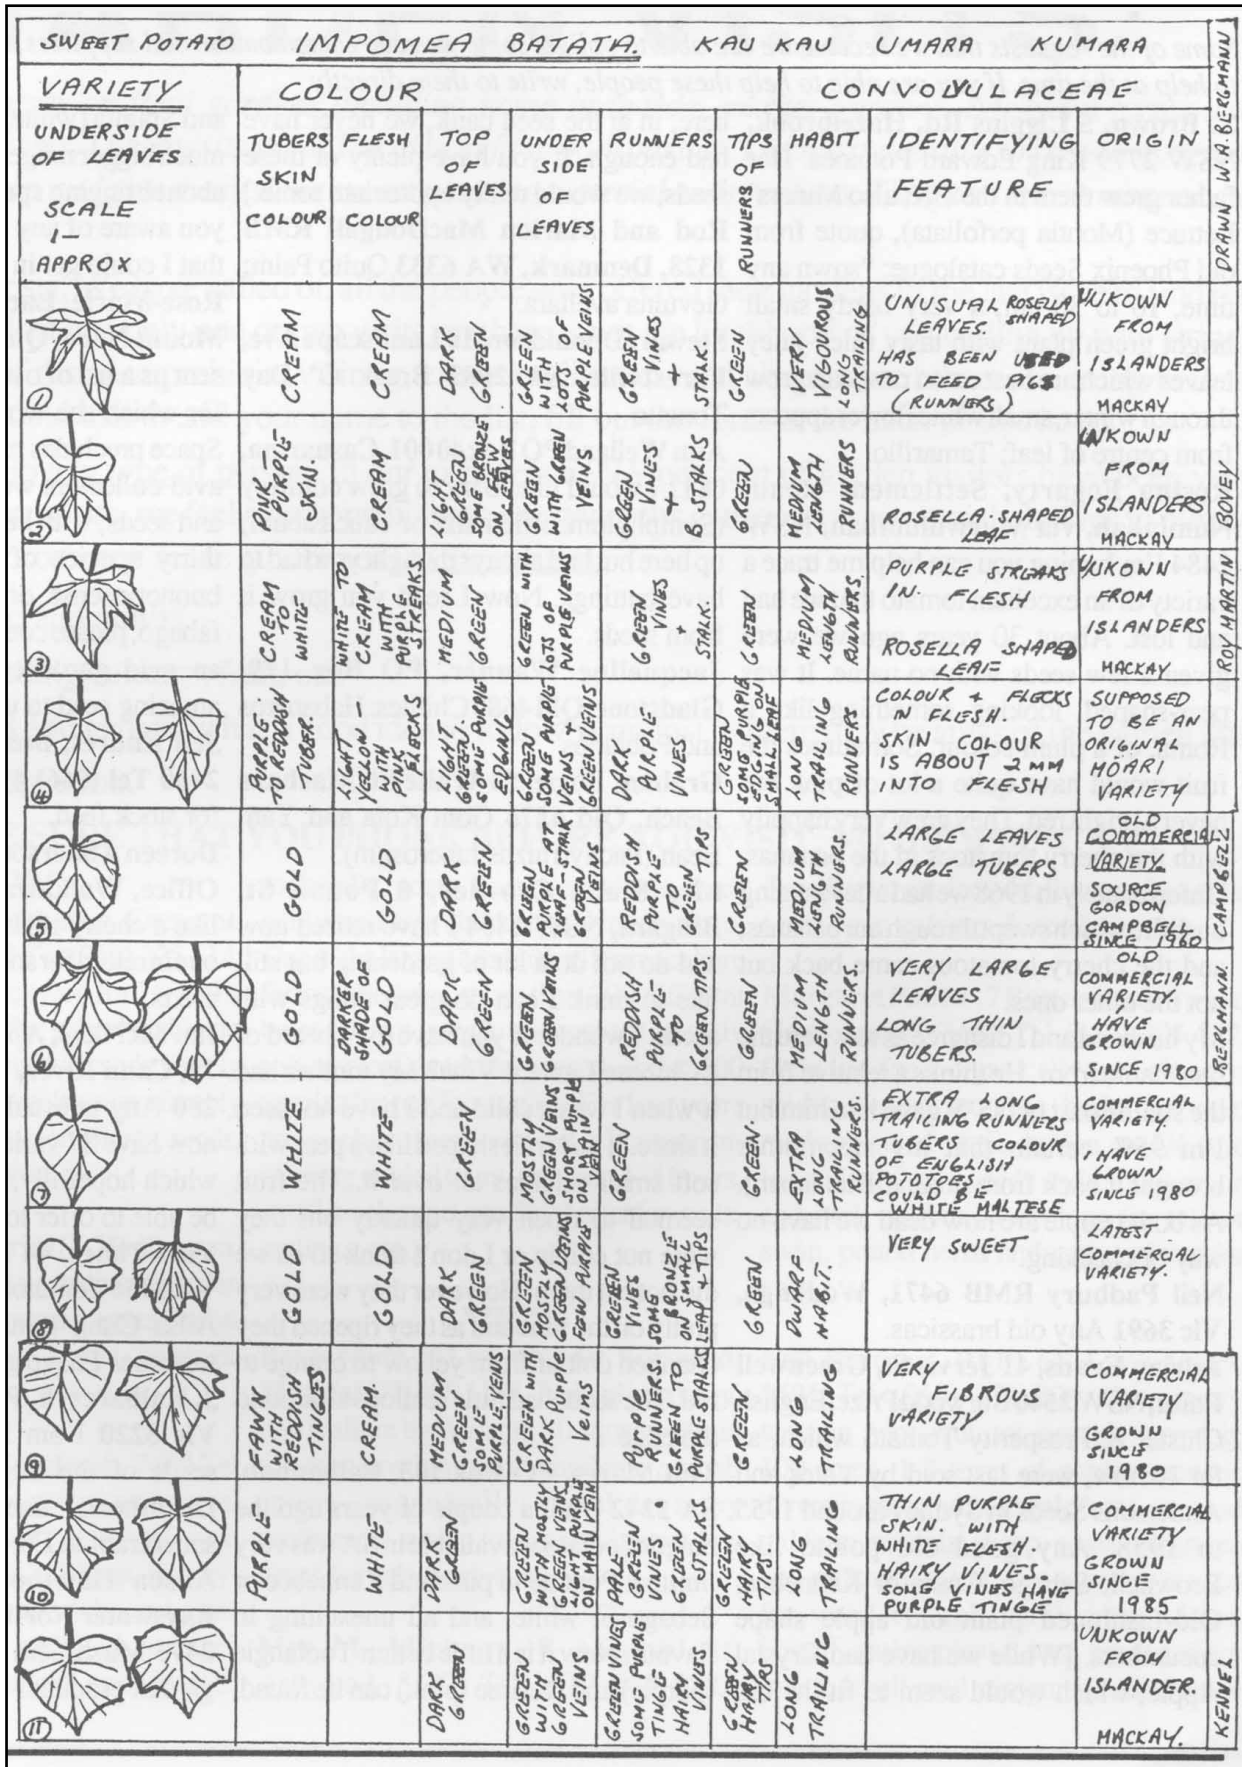 SWEET POTATO IMPOMEA BATATA. KAU KAU UMARA KUMARA
VARIETY
UNDERSIDE
OF LEAVES
SCALE
1-
APPROX
COLOUR
CONVOLVULACEAE
TUBERS
SKIN
COLOUR
FLESH
COLOUR
TOP
OF
LEAVES
UNDER
SIDE
OF
LEAVES
RUNNERS
TIPS
OF
RUNNERS
HABIT
IDENTIFYING
FEATURE
ORIGIN
1
CREAM
CREAM
DARK
GREEN
GREEN
WITH
LOTS OF
PURPLE VEINS
GREEN
VINES
+
STALK.
GREEN
VERY
VIGOUROUS
LONG
TRAILING
UNUSUAL ROSELLA
SHAPED
LEAVES.
HAS BEEN USED
TO FEED PIGS
(RUNNERS)
UUKOWN
FROM
ISLANDERS
MACKAY
2
PINK TO
PURPLE
SKIN.
CREAM
LIGHT
GREEN
SOME BRONZE
ON NEW
LEAVES
GREEN
WITH GREEN
VEINS
GREEN
VINES
+
STALKS
GREEN
MEDIUM
LENGTH
RUNNERS
ROSELLA SHAPED
LEAF
UNKOWN
FROM
ISLANDERS
MACKAY
3
CREAM
TO
WHITE
WHITE TO
CREAM
WITH
PURPLE
STREAKS
MEDIUM
GREEN
GREEN WITH
LOTS OF
PURPLE VEINS
GREEN
VINES
+
STALK.
GREEN
MEDIUM
LENGTH
RUNNERS.
PURPLE STREAKS
IN FLESH
ROSELLA SHAPED
LEAF
UUKOWN
FROM
ISLANDERS
MACKAY
4
PURPLE
TO REDDISH
TUBER.
LIGHT
YELLOW –
WITH
PINK
FLECKS.
LIGHT
GREEN
SOME PURPLE
EDGING
GREEN
SOME PURPLE
VEINS +
GREEN VEINS
DARK
PURPLE
VINES
GREEN
SOME PURPLE
EDGING ON
SMALL LEAF
LONG
TRAILING
RUNNERS.
COLOUR + FLECKS
IN FLESH.
SKIN COLOUR
IS ABOUT 2 MM
INTO FLESH
SUPPOSED
TO BE AN
ORIGINAL
MŌARI
VARIETY
5
GOLD
GOLD
DARK
GREEN
GREEN
PURPLE AT
LEAF-STALK
GREEN
VEINS
REDDISH
PURPLE
TO
GREEN TIPS
GREEN
MEDIUM
LENGTH
RUNNERS.
LARGE LEAVES
LARGE TUBERS
OLD
COMMERCIAL
VARIETY
SOURCE
GORDON
CAMPBELL
SINCE 1960
6
GOLD
DARKER
SHADE OF
GOLD
DARK
GREEN
GREEN
GREEN VEINS
REDDISH
PURPLE
TO
GREEN TIPS
GREEN
MEDIUM
LENGTH
RUNNERS.
VERY LARGE
LEAVES
LONG THIN
TUBERS.
OLD
COMMERCIAL
VARIETY.
HAVE
GROWN
SINCE 1980
7
WHITE
WHITE
GREEN
MOSTLY
GREEN VEINS
SHORT PURPLE
ON MAIN
VEIN
GREEN
GREEN.
EXTRA
LONG
TRAILING
RUNNERS.
EXTRA LONG
TRAILING RUNNERS
TUBERS COLOUR
OF ENGLISH
POTATOES
COULD BE
WHITE MALTESE
COMMERCIAL
VARIETY.
I HAVE
GROWN
SINCE 1980
8
GOLD
GOLD
DARK
GREEN
GREEN
MOSTLY
GREEN VEINS
FEW PURPLE
GREEN
VINES
SOME
BRONZE
SMALL
LEAF + TIPS
GREEN
DWARF
HABIT.
VERY SWEET
LATEST
COMMERCIAL
VARIETY.
9
FAWN
WITH
REDDISH
TINGES
CREAM.
MEDIUM
GREEN
SOME
PURPLE VEINS
GREEN WITH
DARK PURPLE
VEINS
PURPLE
RUNNERS
GREEN TO
PURPLE STALKS
GREEN
LONG
TRAILING
VERY
FIBROUS
VARIETY
COMMERCIAL
VARIETY
GROWN
SINCE
1980
10
PURPLE
WHITE
DARK
GREEN
GREEN
WITH MOSTLY
GREEN VEINS
LIGHT PURPLE
ON MAIN VEIN
PALE
GREEN
VINES
GREEN
STALK
GREEN
HAIRY
TIPS.
LONG
TRAILING
THIN PURPLE
SKIN. WITH
WHITE FLESH.
HAIRY VINES.
SOME VINES HAVE
PURPLE TINGLE
COMMERCIAL
VARIETY
GROWN
SINCE
1985
11
DARK
GREEN
GREEN
WITH
GREEN
VEINS
GREEN VINES
SOME PURPLE
TINGE
HAIRY
VINES
GREEN
HAIRY
TIPS
LONG
TRAILING
UNKOWN
FROM
ISLANDER.
MACKAY.
DRAWN W.A. BERGMANN
ROY MARTIN BOVEY
CAMPBELL
BERGMANN.
KENNEY